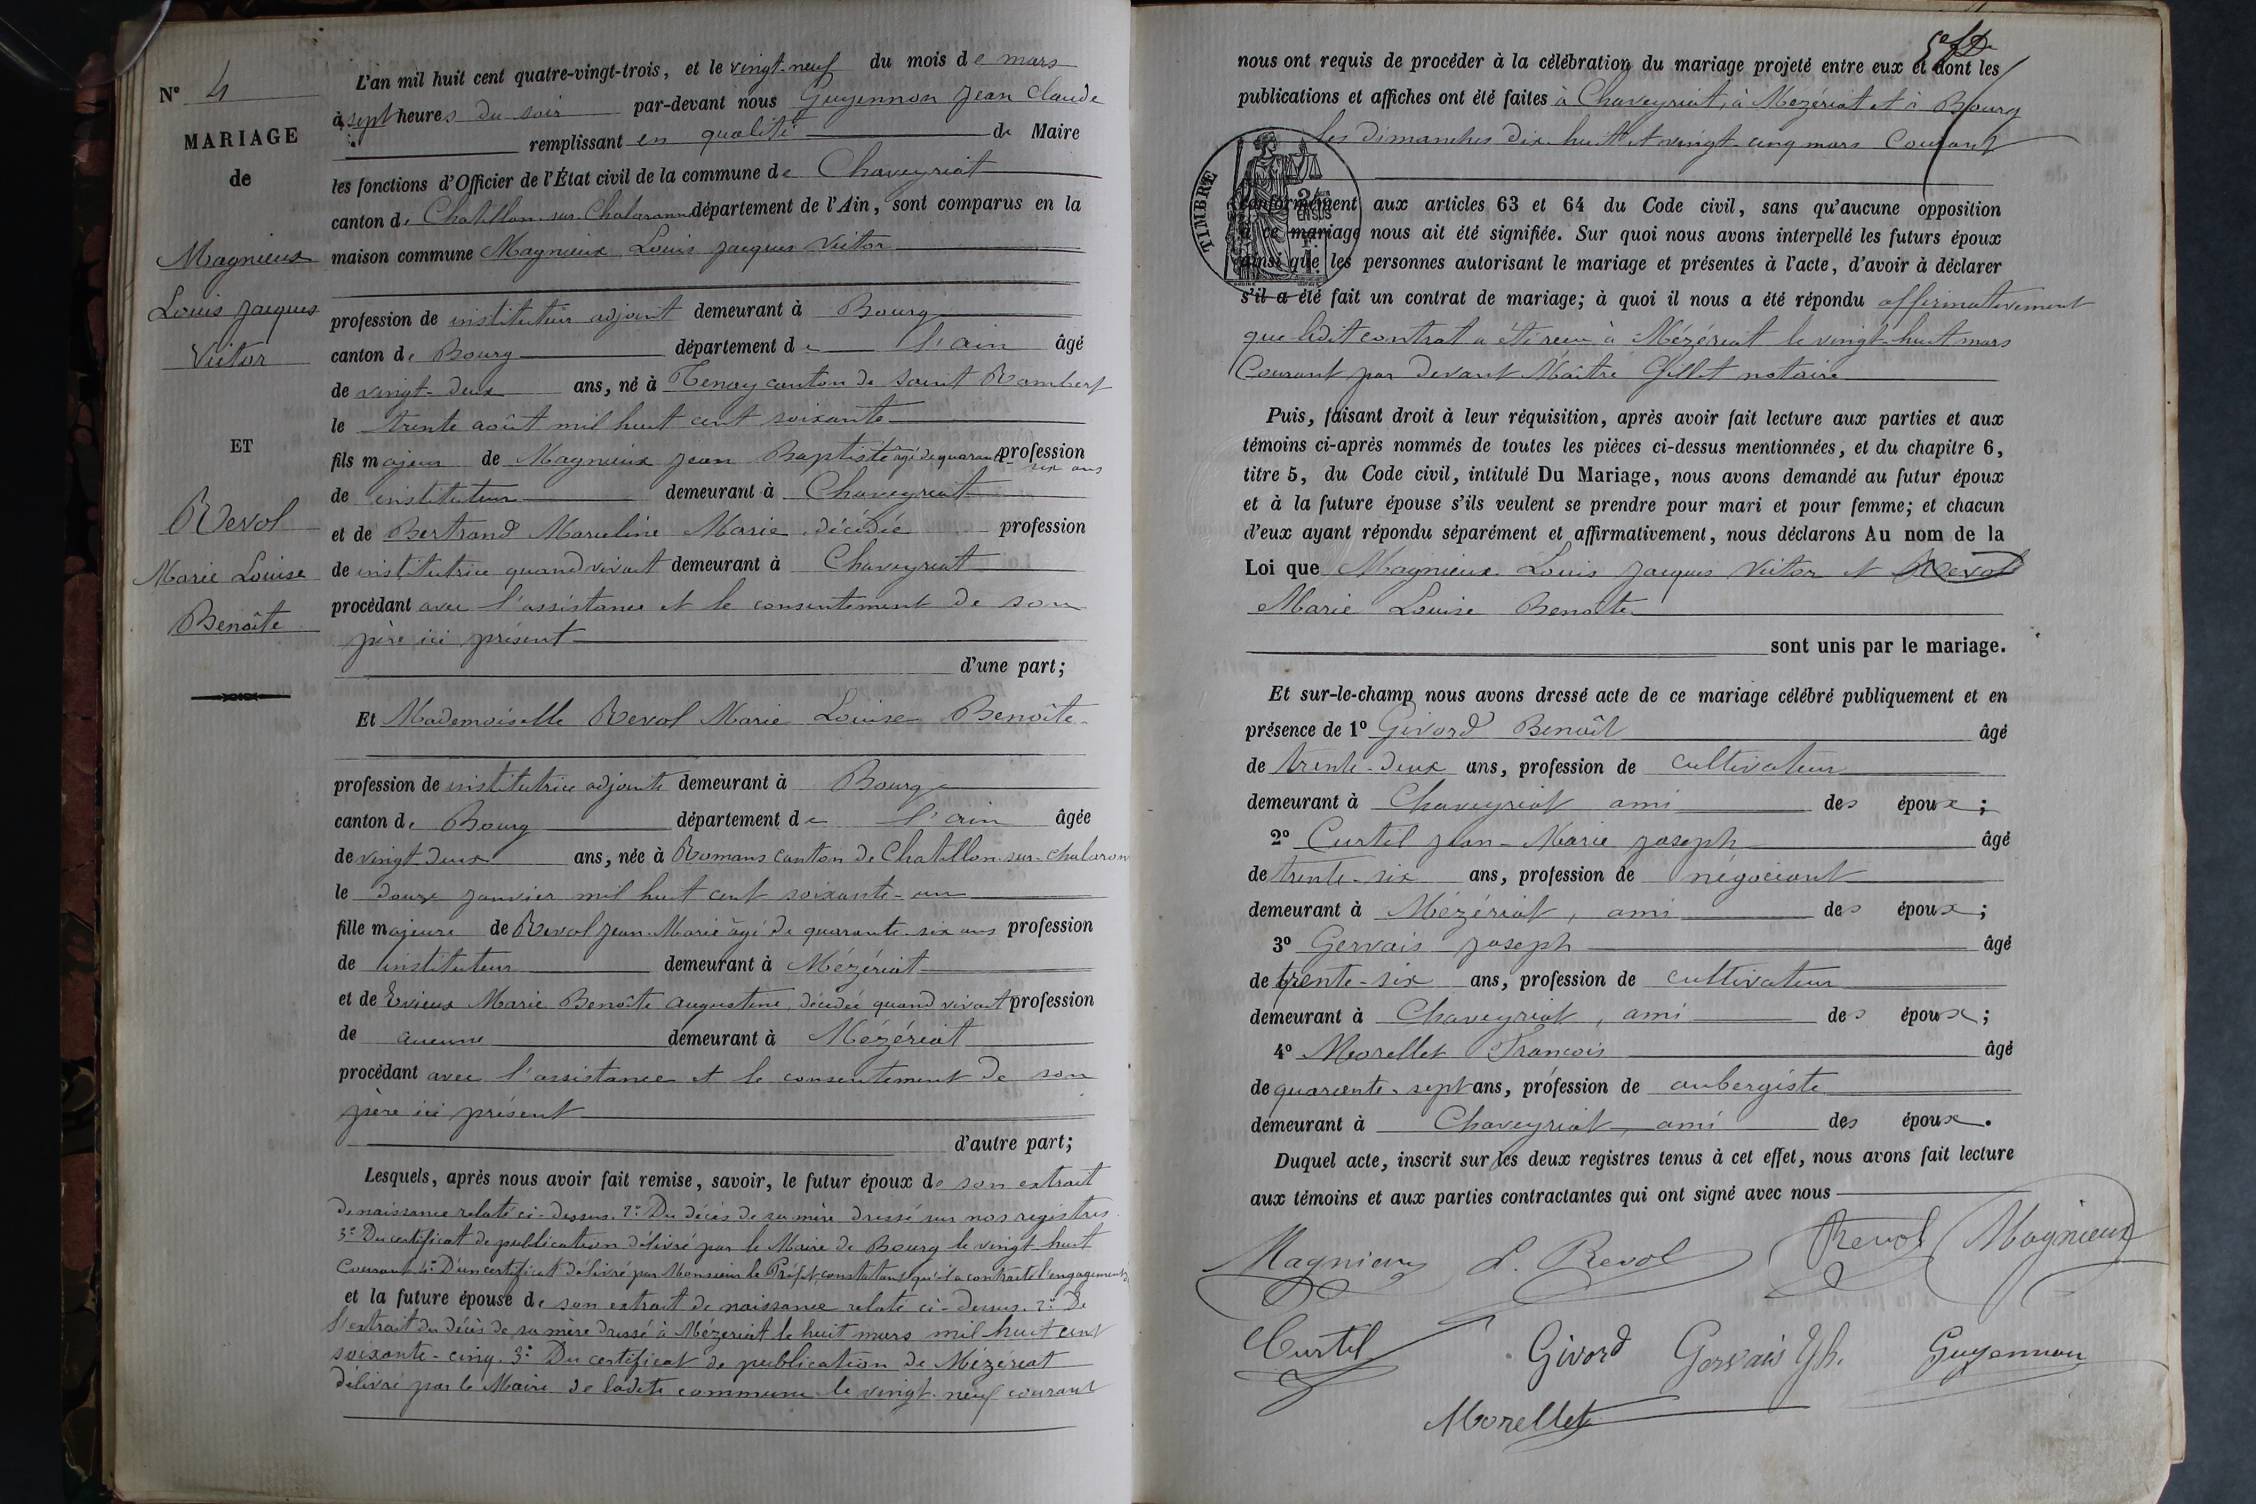 N° 4
MARIAGE
de
Magnieux
Louis Jacques
Victor
ET
Revol
Marie Louise
Benoîte
L'an mil huit cent quatre-vingt-trois, et le vingt-neuf du mois de mars
à sept heures du soir par-devant nous Guyennon Jean Claude
remplissant en qualité de Maire
les fonctions d'Officier de l'État civil de la commune de Chaveyriat
canton de Chatillon-sur-Chalaronne département de l'Ain, sont comparus en la
maison commune Magnieux Louis Jacques Victor
profession de instituteur adjoint demeurant à Bourg
canton de Bourg département de l'ain âgé
de vingt-deux ans, né à Tenay canton de Saint Rambert
le trente août mil huit cent soixante
fils majeur de Magnieux Jean Baptiste âgé de quarante-six ans profession
de instituteur demeurant à Chaveyriat
et de Bertrand Marceline Marie décédée profession
de institutrice quand vivait demeurant à Chaveyriat
procédant avec l'assistance et le consentement de son
père ici présent
d'une part;
Et Mademoiselle Revol Marie Louise Benoîte
profession de institutrice adjointe demeurant à Bourg
canton de Bourg département de l'ain âgée
de vingt-deux ans, née à Romans canton de Chatillon-sur-Chalaron
le douze janvier mil huit cent soixante-un
fille majeure de Revol Jean-Marie âgé de quarante-six ans profession
de instituteur demeurant à Mézériat
et de Evieux Marie Benoîte Augustine, décédée quand vivait profession
de aucune demeurant à Mézériat
procédant avec l'assistance et le consentement de son
père ici présent
d'autre part;
Lesquels, après nous avoir fait remise, savoir, le futur époux de son extrait
de naissance relaté ci-dessus. 2° Du décès de sa mère dressé sur nos registres
3° Du certificat de publication délivré par le Maire de Bourg le vingt-huit
courant 4° D'un certificat délivré par Monsieur le Préfet constatant qu'il a contracté l'engagement
et la future épouse de son extrait de naissance relaté ci-dessus. 2° De
l'extrait du décès de sa mère dressé à Mézériat le huit mars mil huit cent
soixante-cinq. 3° Du certificat de publication de Mézériat
délivré par le Maire de ladite commune le vingt-neuf courant
nous ont requis de procéder à la célébration du mariage projeté entre eux et dont les
publications et affiches ont été faites à Chaveyriat, à Mézériat et à Bourg
les dimanches dix-huit et vingt-cinq mars courant
TIMBRE
conformément aux articles 63 et 64 du Code civil, sans qu'aucune opposition
à ce mariage nous ait été signifiée. Sur quoi nous avons interpellé les futurs époux
ainsi que les personnes autorisant le mariage et présentes à l'acte, d'avoir à déclarer
s'il a été fait un contrat de mariage; à quoi il nous a été répondu affirmativement
que ledit contrat a été reçu à Mézériat le vingt-huit mars
courant par devant Maître Gillet notaire
Puis, faisant droit à leur réquisition, après avoir fait lecture aux parties et aux
témoins ci-après nommés de toutes les pièces ci-dessus mentionnées, et du chapitre 6,
titre 5, du Code civil, intitulé Du Mariage, nous avons demandé au futur époux
et à la future épouse s'ils veulent se prendre pour mari et pour femme; et chacun
d'eux ayant répondu séparément et affirmativement, nous déclarons Au nom de la
Loi que Magnieux Louis Jacques Victor et Revol
Marie Louise Benoîte
sont unis par le mariage.
Et sur-le-champ nous avons dressé acte de ce mariage célébré publiquement et en
présence de 1° Givord Benoît âgé
de trente-deux ans, profession de cultivateur
demeurant à Chaveyriat ami des époux;
2° Curtil Jean-Marie Joseph âgé
de trente-six ans, profession de négociant
demeurant à Mézériat, ami des époux;
3° Gervais Joseph âgé
de trente-six ans, profession de cultivateur
demeurant à Chaveyriat, ami des époux;
4° Morellet François âgé
de quarante-sept ans, profession de aubergiste
demeurant à Chaveyriat, ami des époux.
Duquel acte, inscrit sur les deux registres tenus à cet effet, nous avons fait lecture
aux témoins et aux parties contractantes qui ont signé avec nous
Magnieux L. Revol Revol Magnieux
Curtil Givord Gervais Jh. Guyennon
Morellet